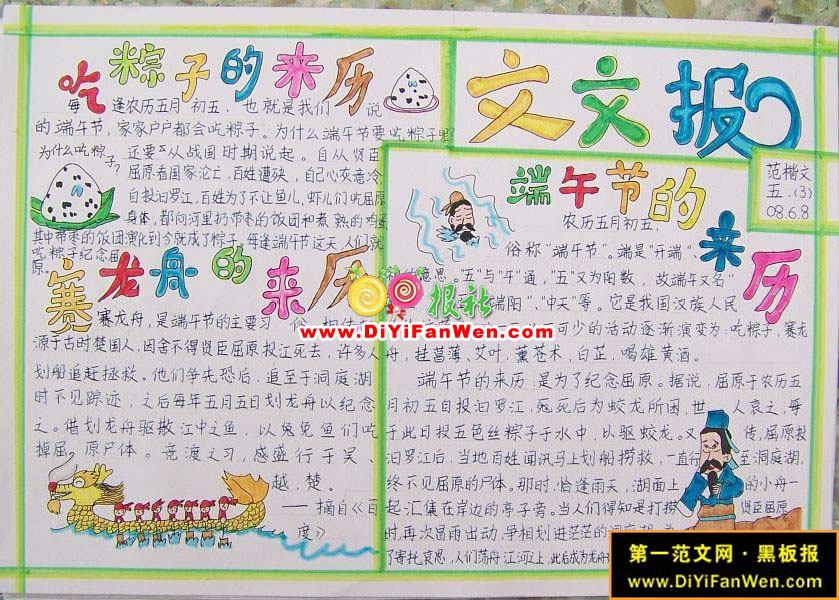 吃粽子的来历
每逢农历五月初五,也就是我们说
的端午节,家家户户都会吃粽子。为什么端午节要吃粽子呢?
为什么吃粽子?
还要从战国时期说起。自从贤臣
屈原看国家沦亡,百姓遭殃,自己心灰意冷,
自投汨罗江,百姓为了不让鱼儿、虾儿们吃屈原
身体,都向河里扔带枣的饭团和煮熟的鸡蛋
其中带枣的饭团演化到今就成了粽子。每逢端午节这天,人们就
吃粽子纪念屈
原。
赛龙舟的来历
赛龙舟,是端午节的主要习俗。相传
源于古时楚国人,因舍不得贤臣屈原投江死去,许多人
划船追赶拯救。他们争先恐后,追至于洞庭湖
时不见踪迹,之后每年五月五日划龙舟以纪念
之。借划龙舟驱散江中之鱼,以免鱼们吃
掉屈原尸体。竞渡之习,盛行于吴、
越、楚。
——摘自《百
度》
文文报
范楷文
五.(3)
08.6.8
端午节的来历
农历五月初五,
俗称“端午节”。端是“开端”、
意思。“五”与“午”通,“五”又为阳数,故端午又名“
端阳”、“中天”等。它是我国汉族人民
可少的活动逐渐演变为:吃粽子,赛龙
舟,挂菖蒲、艾叶,薰苍术、白芷,喝雄黄酒。
端午节的来历,是为了纪念屈原。据说,屈原于农历五
月初五自投汨罗江,死死后为蛟龙所困,世人哀之,每
于此日投五色丝粽子于水中,以驱蛟龙。又传,屈原投
汨罗江后,当地百姓闻讯马上划船捞救,一直行至洞庭湖,
终不见屈原的尸体。那时,恰逢雨天,湖面上的小舟一
起汇集在岸边的亭子旁。当人们得知是打捞贤臣屈原
时,再次冒雨出动,争相划进茫茫的洞庭湖。为
了寄托哀思,人们荡舟江河之上,此后成为龙舟
报社
www.DiYiFanWen.com
第一范文网·黑板报
www.DiYiFanWen.com